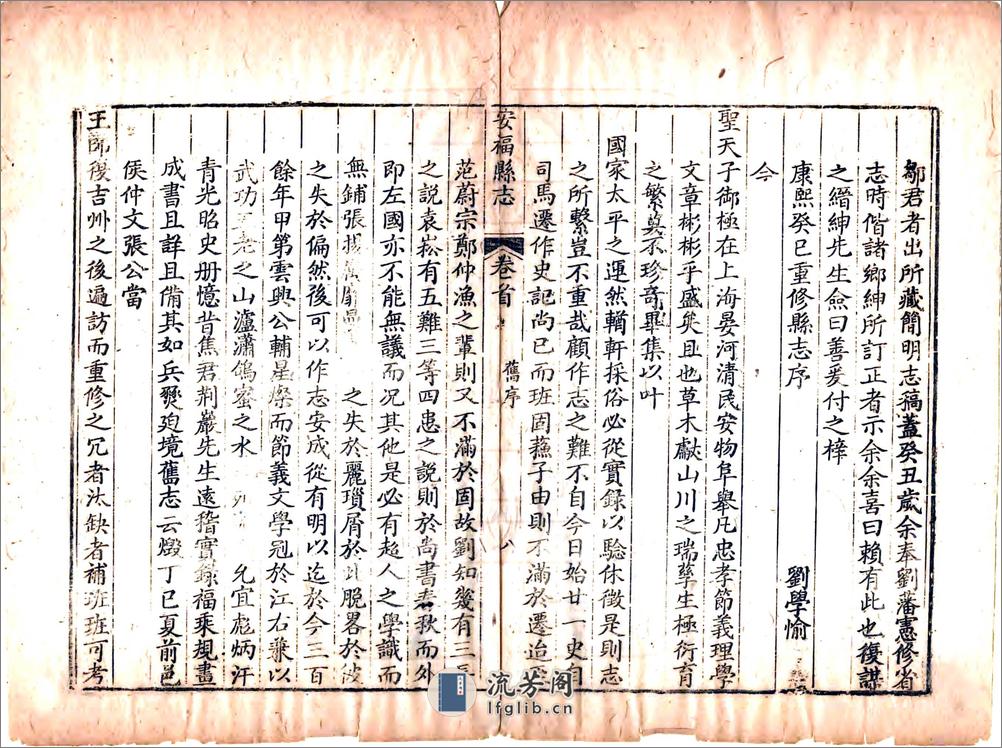 鄒君者出所藏簡明志稿蓋癸丑歲余奉劉藩憲修省
志時偕諸鄉紳所訂正者示余余喜曰賴有此也復謀
之縉紳先生僉曰善爰付之梓
康熙癸巳重修縣志序
劉學愉
今
聖天子御極在上海晏河清民安物阜舉凡忠孝節義理學
文章彬彬乎盛矣且也草木獻山川之瑞孳生極衍育
之繁莫不珍奇畢集以叶
國家太平之運然輶軒採俗必從實錄以驗休徵是則志
之所繫豈不重哉顧作志之難不自今日始廿一史自
司馬遷作史記尚已而班固蘇子由則不滿於遷迨
安福縣志
卷首
舊序
八
范蔚宗鄭仲漁之輩則又不滿於固故劉知幾有三
之說袁崧有五難三等四患之說則於尚書春秋而外
即左國亦不能無議而況其他是必有超人之學識而
無鋪張 之失於麗瑣屑於 脫畧於
之失於偏然後可以作志安成從有明以迄於今三百
餘年甲第雲興公輔星燦而節義文學冠於江右兼以
武功 之山瀘瀟鴿蜜之水 允宜彪炳汗
青光昭史册憶昔焦君荆巖先生遠稽實錄福乘規畫
成書且詳且備其如兵燹殉境舊志云燬丁巳夏前邑
侯仲文張公當
王師復吉州之後遍訪而重修之冗者汰缺者補班班可考
流芳阁
lfglib.cn